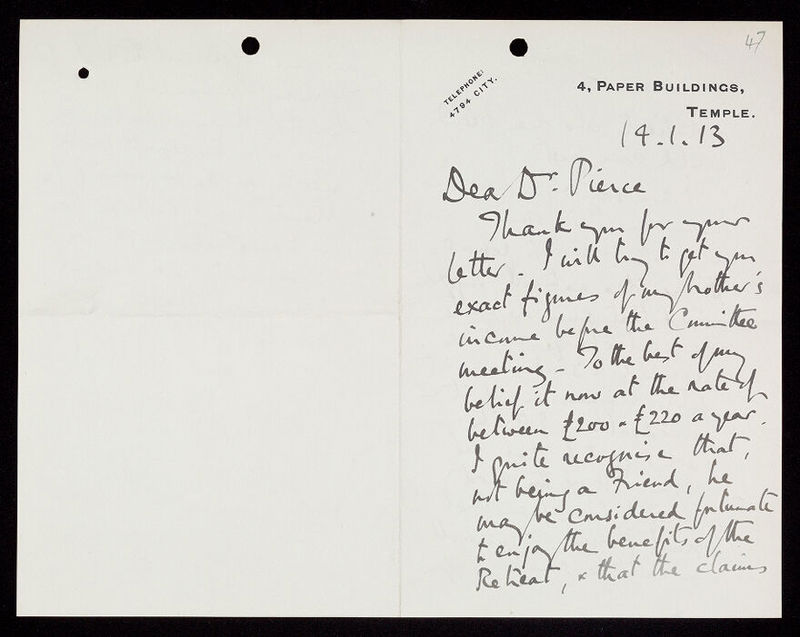 47
TELEPHONE:
4794 CITY.
4, PAPER BUILDINGS,
TEMPLE.
14.1.13
Dear Dr. Pierce
Thank you for your
letter. I will try to get you
exact figures of my brother's
income before the Committee
meeting. To the best of my
belief it now at the rate of
between £200 & £220 a year.
I quite recognise that,
not being a Friend, he
may be considered fortunate
to enjoy the benefits of the
Retreat, & that the claims